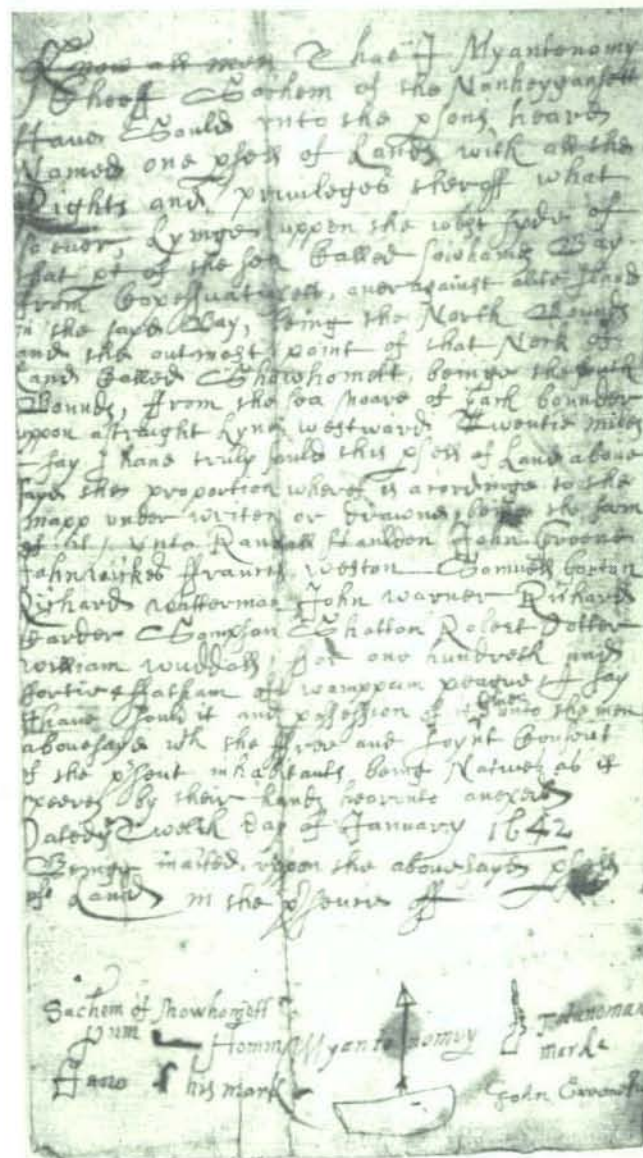 Know all men That I Myantonomy
Cheeff Sachem of the Nanheygansett
Have Sould unto the psons heare
Named one psell of Lands with all the
Rights and privileges theroff what
soever, Lyinge uppon the west syde of
that pt of the sea Called Sowhams Bay
from Copessuatuxett, over against alitle Iland
in the sayd Bay, being the North Bounds
and the outmost point of that Neck of
Land Called Shawhomett, beinge the South
Bounds, ffrom the sea shoare of each bounder
uppon a straight Lyne westward Twentie miles
I say I have truly sould this psell of Lande above
sayd the proportion wherof is acordinge to the
mapp under writen or drawne, being the form
of it, unto Randall Houldon John Greene
John wickes ffrancis weston Samuell Gorton
Richard watterman John warner Richard
Carder Sampson Shotton Robert Potter
william wuddall, for one hundreth and
fortie ffatham of wamppum peague I say
I have sould it and possession of it given unto the men
abovesayd with the ffree and Joynt Consent
of the psent inhabitants being Natives as it
apeeres by their hands hereunto anexed
Dated Twelth Day of January 1642
Beinge inacted uppon the abovesayd psell
of Land in the psence off
Sachem of Showhomett
Pum Homm Myantonomy
his mark
Totanoman
marke
John Greene